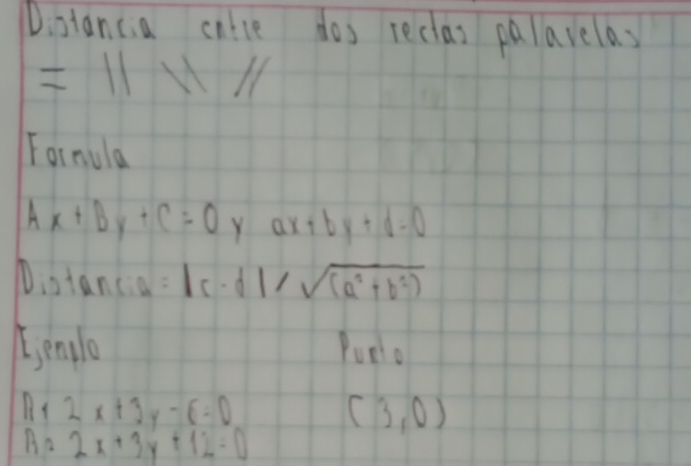 Distancia entre dos rectas palarelas
= || \\ //
Formula
Ax + By + C = 0 y ax + by + d = 0
Distancia = |c - d| / √(a² + b²)
Ejemplo Punto
R1 2x + 3y - 6 = 0 (3,0)
R2 2x + 3y + 12 = 0